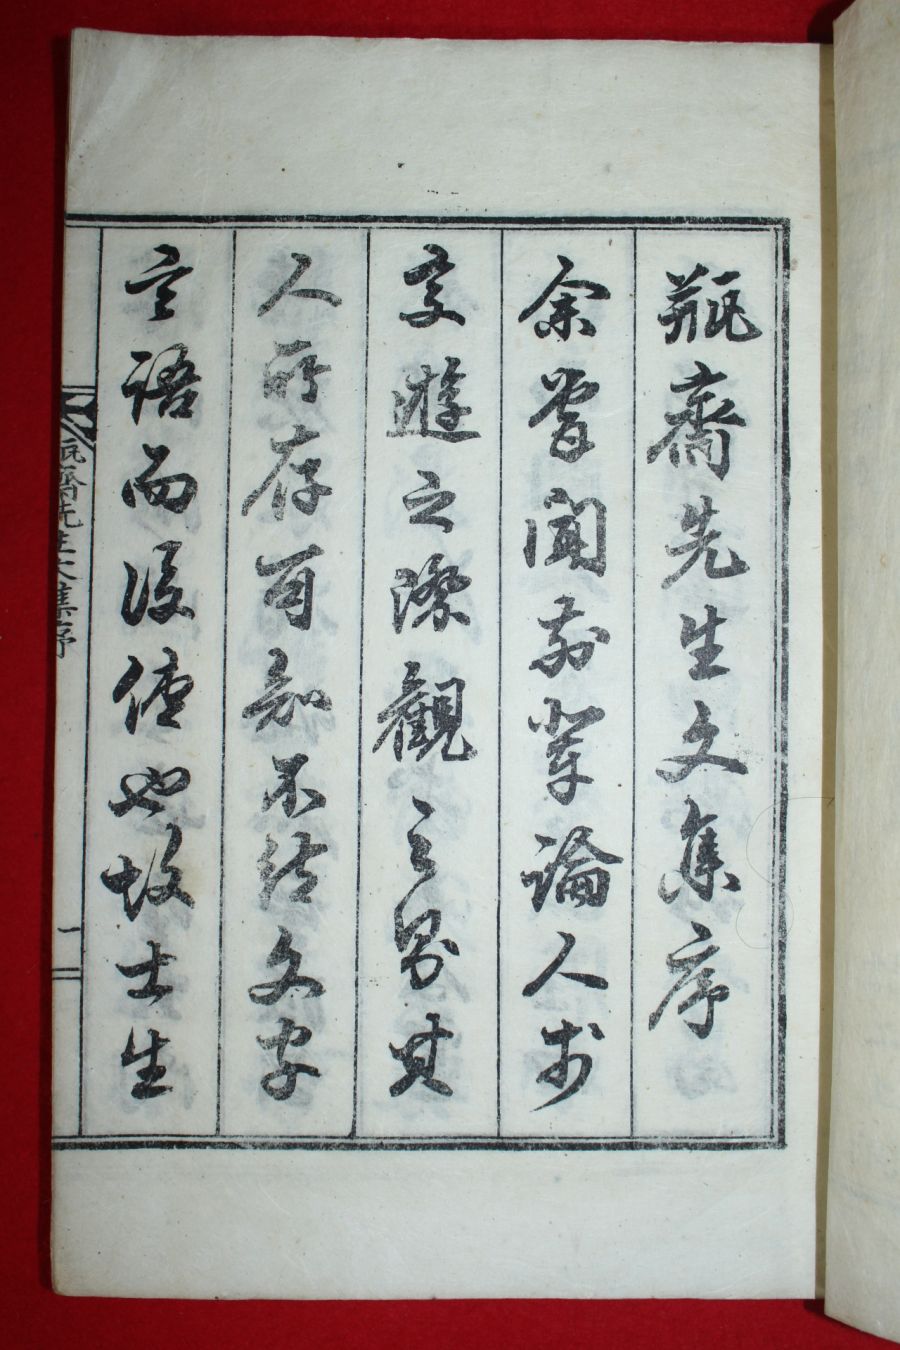 甁齋先生文集序
余嘗聞前輩論人於
交遊之際觀之男其
人所存可知不待文字
言語而後信也故士生
甁齋先生文集序
一